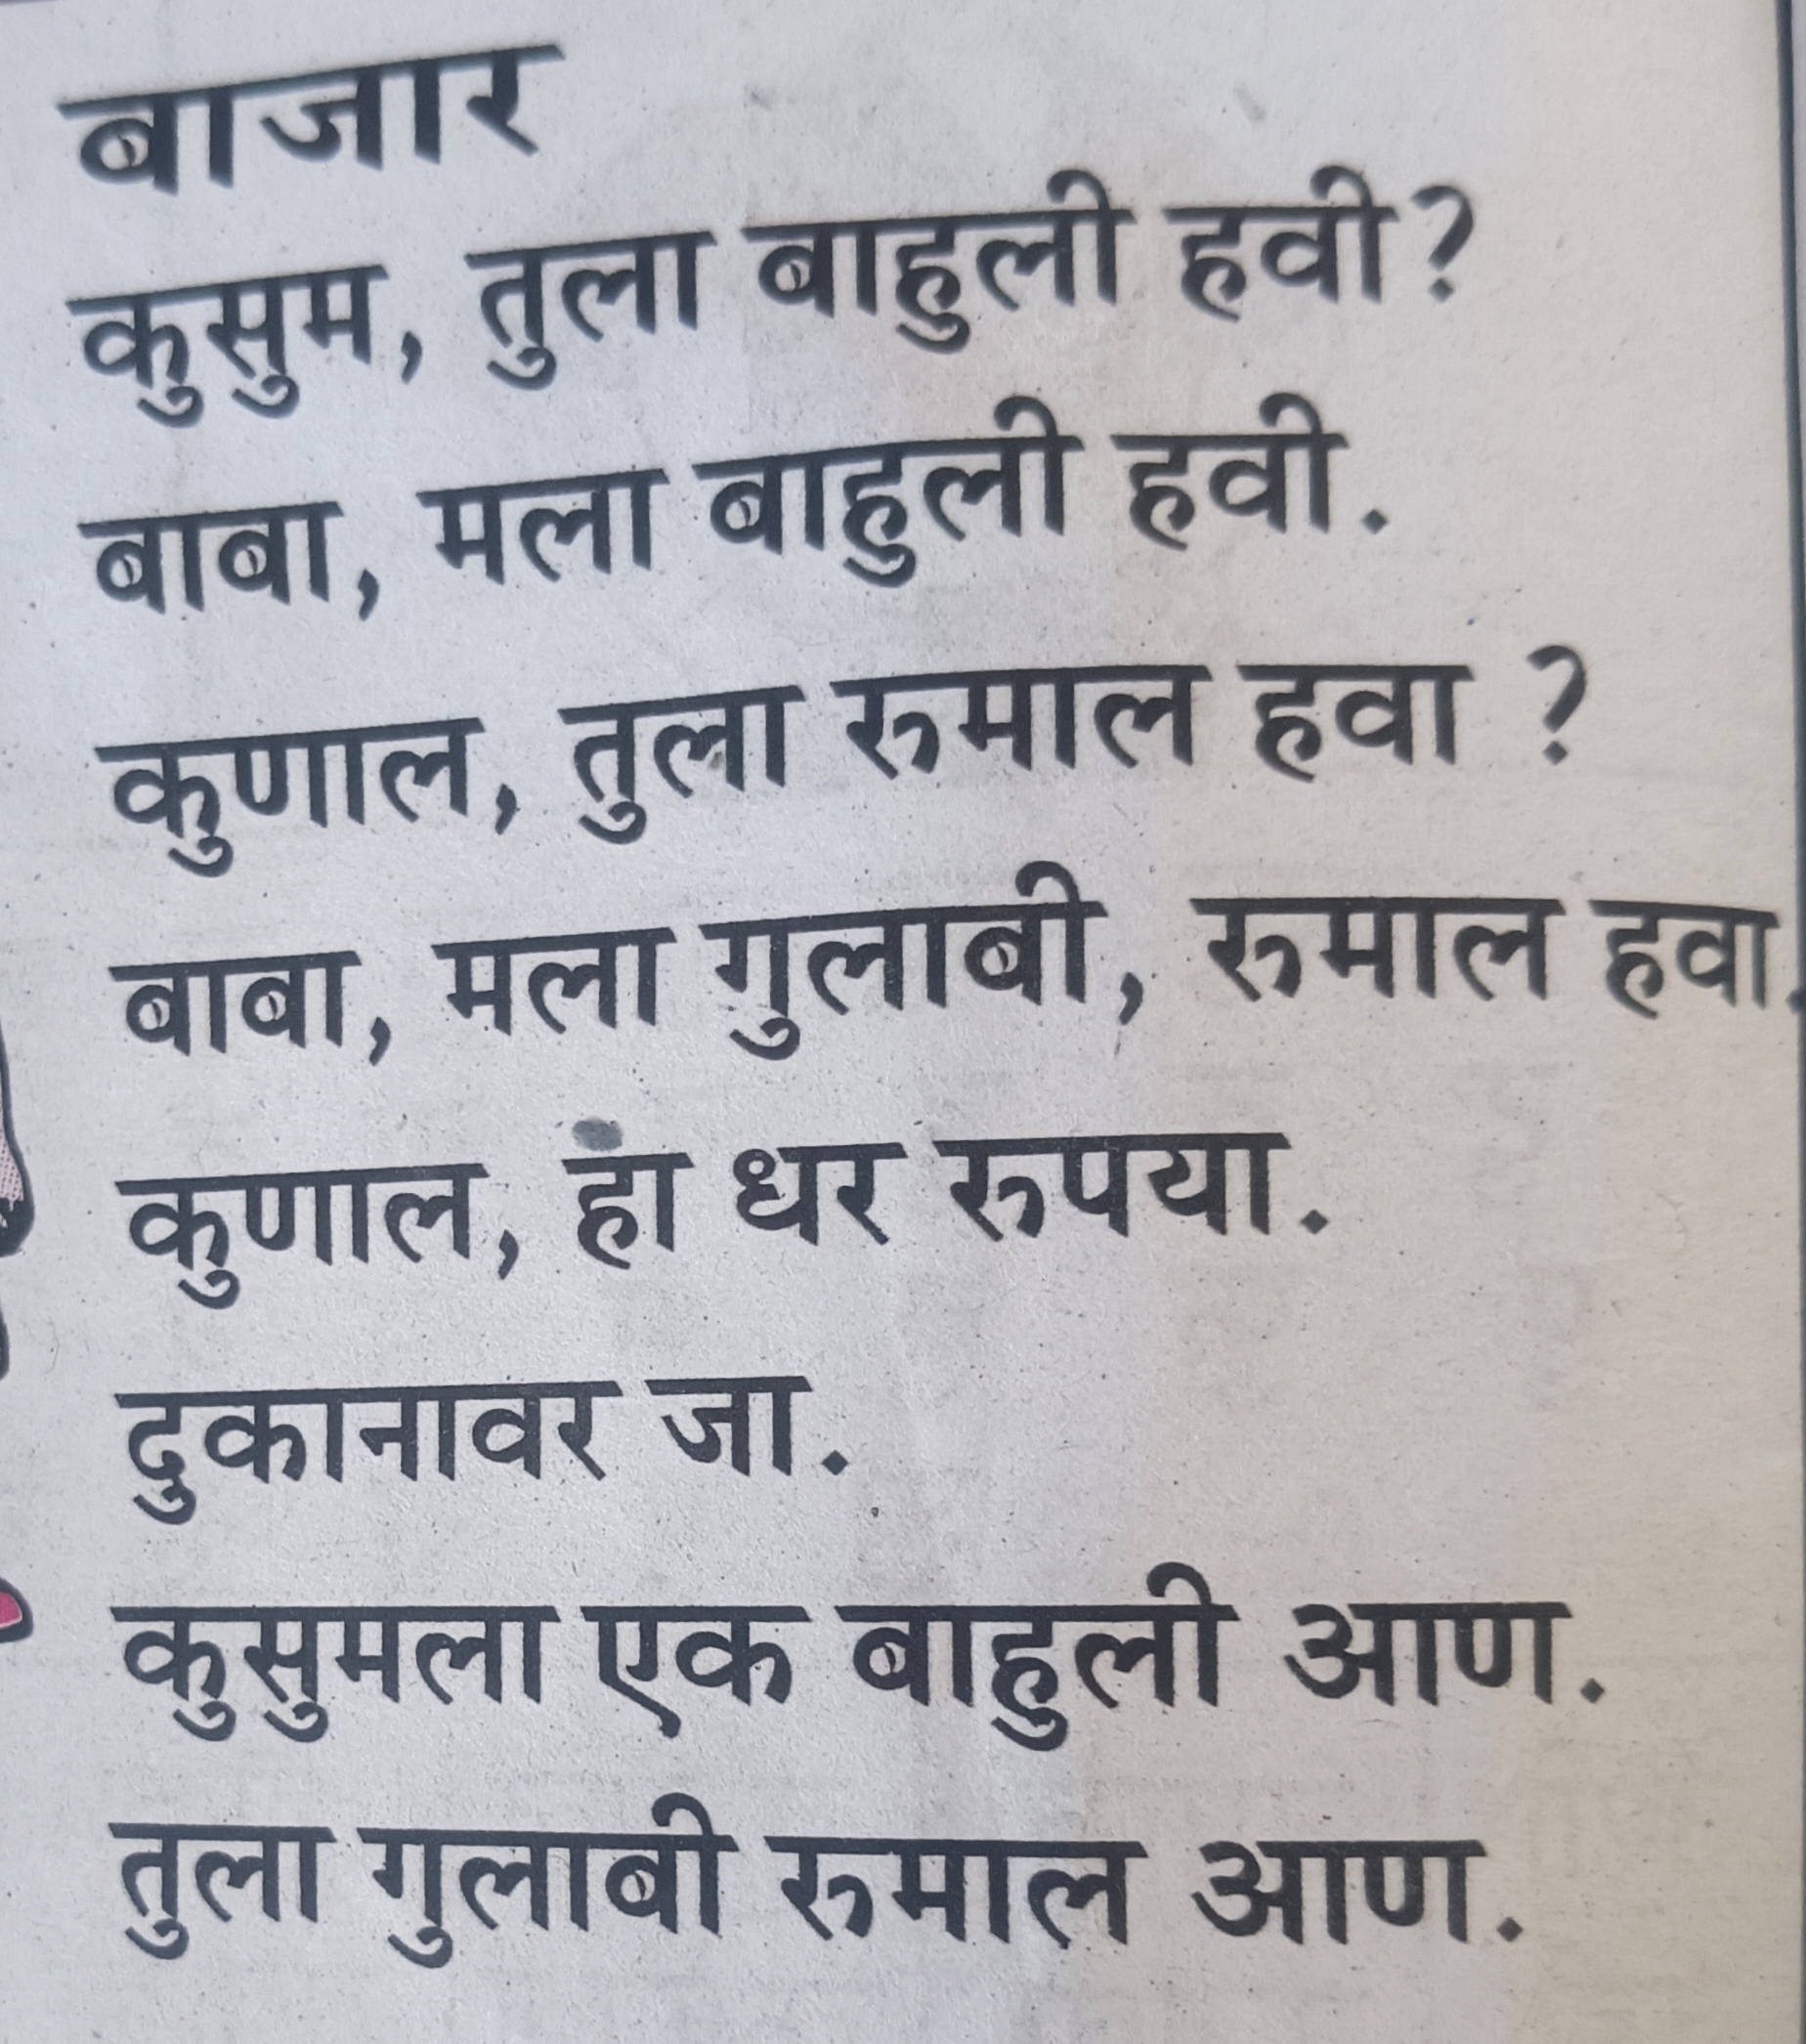 बाजार
कुसुम, तुला बाहुली हवी?
बाबा, मला बाहुली हवी.
कुणाल, तुला रुमाल हवा ?
बाबा, मला गुलाबी, रुमाल हवा.
कुणाल, हा धर रुपया.
दुकानावर जा.
कुसुमला एक बाहुली आण.
तुला गुलाबी रुमाल आण.